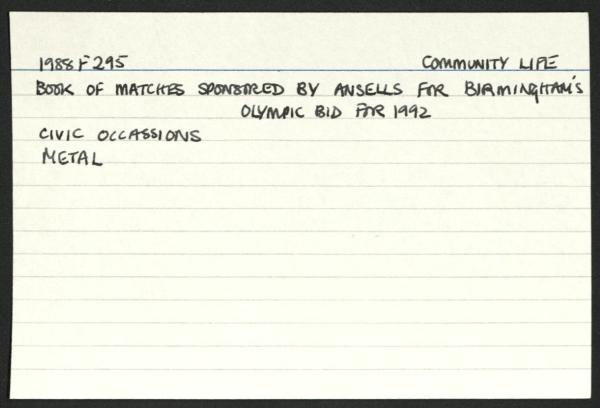 1988 F 295 COMMUNITY LIFE
BOOK OF MATCHES SPONSORED BY ANSELLS FOR BIRMINGHAM'S
OLYMPIC BID FOR 1992
CIVIC OCCASSIONS
METAL